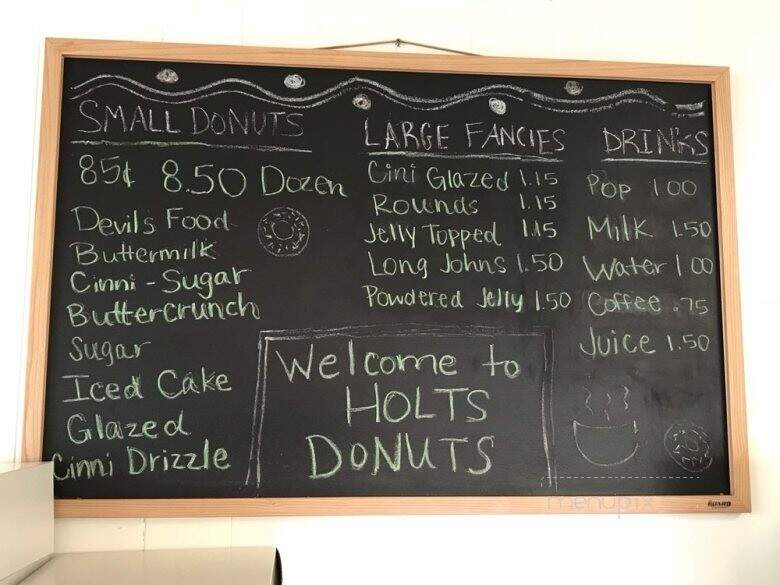 SMALL DONUTS
85¢ 8.50 Dozen
Devils Food
Buttermilk
Cinni - Sugar
Buttercrunch
Sugar
Iced Cake
Glazed
Cinni Drizzle
LARGE FANCIES
Cini Glazed 1.15
Rounds 1.15
Jelly Topped 1.15
Long Johns 1.50
Powdered Jelly 1.50
DRINKS
Pop 1.00
Milk 1.50
Water 1.00
Coffee .75
Juice 1.50
Welcome to
HOLTS
DONUTS
menupix